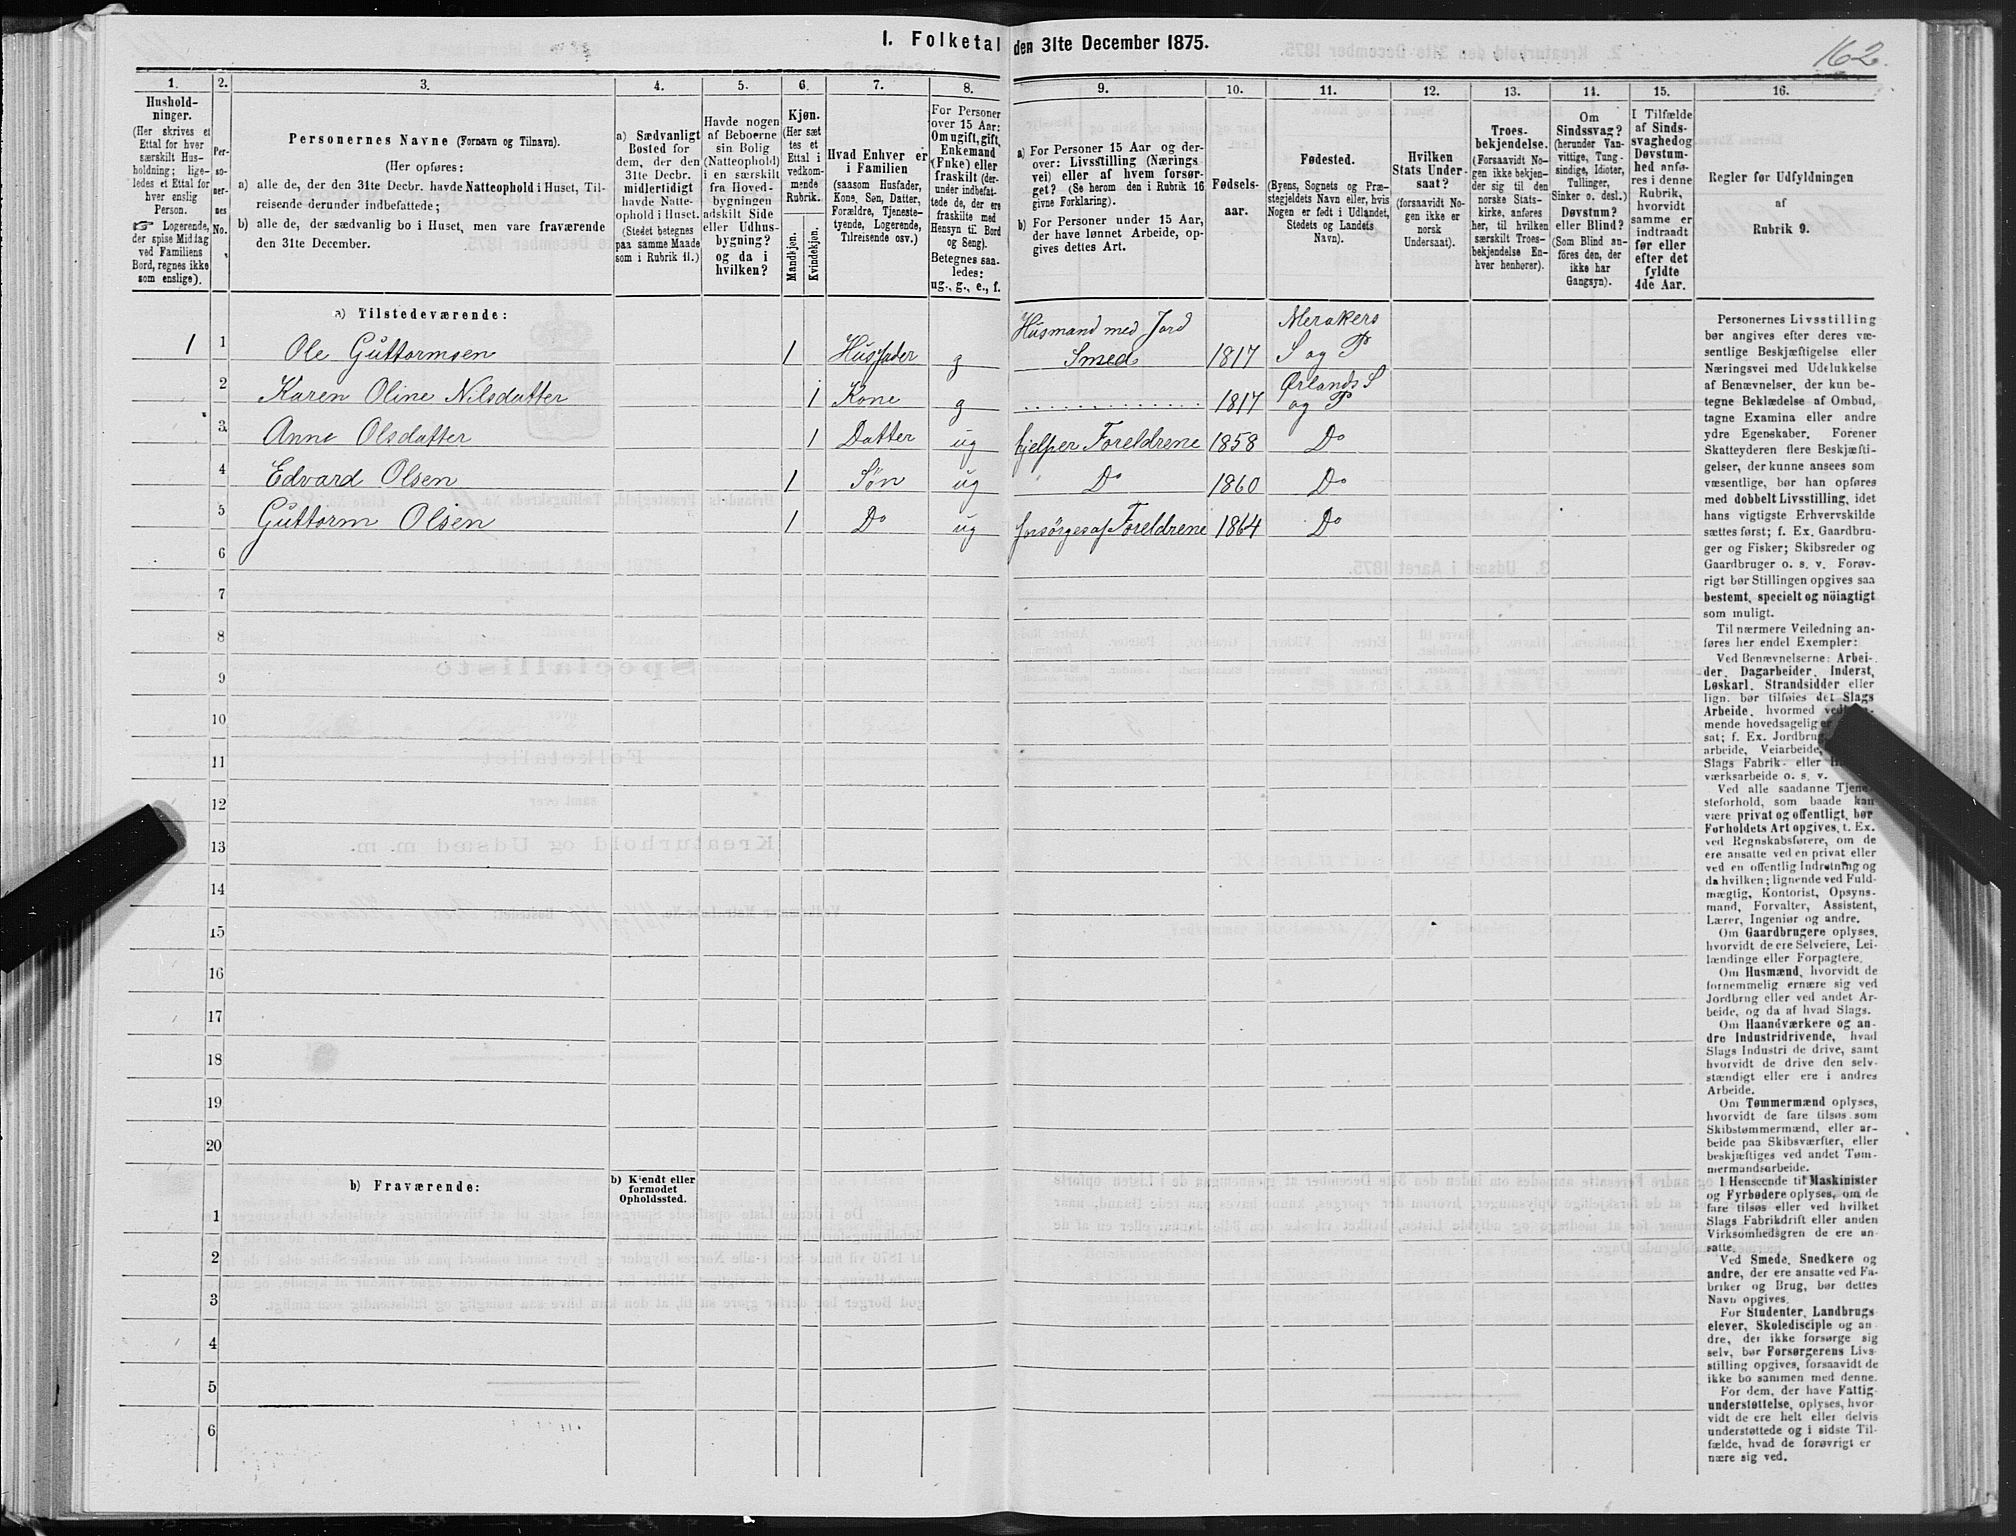 I. Folketal den 31te December 1875.
162.
1.
Hushold-
ninger.
(Her skrives et
Ettal for hver
særskilt Hus-
holdning; lige-
ledes et Ettal for
hver enslig
Person.
☞ Logerende,
der spise Middag
ved Familiens
Bord, regnes ikke
som enslige).
2.
Per-
so-
ner-
nes
No.
3.
Personernes Navne (Fornavn og Tilnavn).
(Her opføres:
a) alle de, der den 31te Decbr. havde Natteophold i Huset, Til-
reisende derunder indbefattede;
b) alle de, der sædvanlig bo i Huset, men vare fraværende
den 31te December.
4.
a) Sædvanligt
Bosted for
dem, der den
31te Decbr.
midlertidigt
havde Natte-
ophold i Huset.
(Stedet betegnes
paa samme Maade
som i Rubrik 11.)
5.
Havde nogen
af Beboerne
sin Bolig
(Natteophold)
i en særskilt
fra Hoved-
bygningen
adskilt Side
eller Udhus-
bygning?
og da i
hvilken?
6.
Kjøn.
(Her sæt
tes et
Ettal i
vedkom-
mende
Rubrik.)
Mandkjøn.
Kvindekjøn.
7.
Hvad Enhver er
i Familien
(saasom Husfader,
Kone, Søn, Datter,
Forældre, Tjeneste-
tyende, Logerende,
Tilreisende osv.)
8.
For Personer
over 15 Aar:
Om ugift, gift,
Enkemand
(Enke) eller
fraskilt (der-
under indbefat-
tede de, der ere
fraskilte med
Hensyn til Bord
og Seng).
Betegnes saa-
ledes:
ug., g., e., f.
9.
a) For Personer 15 Aar og der-
over: Livsstilling (Nærings-
vei) eller af hvem forsør-
get? (Se herom den i Rubrik 16
givne Forklaring).
b) For Personer under 15 Aar,
der have lønnet Arbeide, op-
gives dettes Art.
10.
Fødsels-
aar.
11.
Fødested.
(Byens, Sognets og Præ-
stegjeldets Navn eller, hvis
Nogen er født i Udlandet,
Stedets og Landets
Navn).
12.
Hvilken
Stats Under-
saat?
(forsaavidt No-
gen ikke er
norsk
Undersaat).
13.
Troes-
bekjendelse.
(Forsaavidt No-
gen ikke bekjen-
der sig til den
norske Stats-
kirke, anføres
her, til hvilken
særskilt Troes-
bekjendelse En-
hver henhører).
14.
Om
Sindssvag?
(herunder Van-
vittige, Tung-
sindige, Idioter,
Tullinger,
Sinker o. desl.)
Døvstum?
eller Blind?
(Som Blind an-
føres den, der
ikke har
Gangsyn).
15.
I Tilfælde
af Sinds-
svaghed og
Døvstum-
hed anfø-
res i denne
Rubrik,
hvorvidt
samme er
indtraadt
før eller
efter det
fyldte
4de Aar.
16.
Regler for Udfyldningen
af
Rubrik 9.
a) Tilstedeværende:
1 1 Ole Guttormsen 1 Husfader g Husmand med Jord Smed 1817 Merakers S og P
2 Karen Oline Nilsdatter 1 Kone g .............. 1817 Ørlands S og P
3 Anne Olsdatter 1 Datter ug hjelper Foreldrene 1858 Do
4 Edvard Olsen 1 Søn ug Do 1860 Do
5 Guttorm Olsen 1 Do ug forsørges af Foreldrene 1864 Do
6
7
8
9
10
11
12
13
14
15
16
17
18
19
20
b) Fraværende:
b) Kjendt eller
formodet
Opholdssted.
1
2
3
4
5
6
Personernes Livsstilling
bør angives efter deres væ-
sentlige Beskjæftigelse eller
Næringsvei med Udelukkelse
af Benævnelser, der kun be-
tegne Beklædelse af Ombud,
tagne Examina eller andre
ydre Egenskaber. Forener
Skatteyderen flere Beskjæfti-
gelser, der kunne ansees som
væsentlige, bør han opføres
med dobbelt Livsstilling, idet
hans vigtigste Erhvervskilde
sættes først; f. Ex. Gaardbru-
ger og Fisker; Skibsreder og
Gaardbruger o. s. v. Forøv-
rigt bør Stillingen opgives saa
bestemt, specielt og nöiagtigt
som muligt.
Til nærmere Veiledning an-
føres her endel Exempler:
Ved Benævnelserne: Arbei-
der, Dagarbeider, Inderst,
Løskarl, Strandsidder eller
lign. bør tilføies det Slags
Arbeide, hvormed
mende hovedsagelig er
sat; f. Ex. Jordbrug
arbeide, Veiarbeide,
Slags Fabrik- eller
værksarbeide o. s. v.
Ved alle saadanne Tjene-
steforhold, som baade kan
være privat og offentligt, bør
Forholdets Art opgives, t. Ex.
ved Regnskabsførere, om de
ere ansatte ved en privat eller
ved en offentlig Indretning og
da hvilken; lignende ved Fuld-
mægtig, Kontorist, Opsyns-
mand, Forvalter, Assistent,
Lærer, Ingeniør og andre.
Om Gaardbrugere oplyses,
hvorvidt de ere Selveiere, Lei-
lændinge eller Forpagtere.
Om Husmænd, hvorvidt de
fornemmelig ernære sig ved
Jordbrug eller ved andet Ar-
beide, og da af hvad Slags.
Om Haandværkere og an-
dre Industridrivende, hvad
Slags Industri de drive, samt
hvorvidt de drive den selv-
stændigt eller ere i andres
Arbeide.
Om Tømmermænd oplyses,
hvorvidt de fare tilsøs som
Skibstømmermænd, eller ar-
beide paa Skibsværfter, eller
beskjæftiges ved andet Tøm-
mermandsarbeide.
I Henseende til Maskinister
og Fyrbødere oplyses, om de
fare tilsøs eller ved hvilket
Slags Fabrikdrift eller anden
Virksomhedsgren de ere an-
satte.
Ved Smede, Snedkere og
andre, der ere ansatte ved Fa-
briker og Brug, bør dettes
Navn opgives.
For Studenter, Landbrugs
elever, Skoledisciple og an-
dre, der ikke forsørge sig
selv, bør Forsørgerens Livs-
stilling opgives, forsaavidt de
ikke bo sammen med denne.
For dem, der have Fattig-
understøttelse, oplyses, hvor
vidt de ere helt eller delvis
understøttede og i sidste Til-
fælde, hvad de forøvrigt er
nære sig ved.